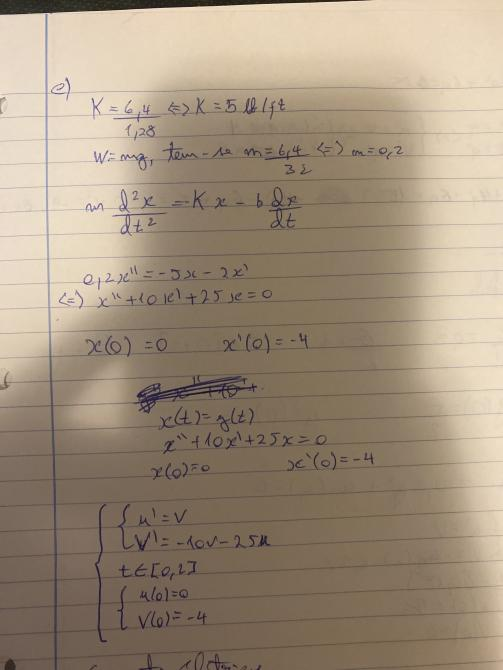 e)
K = 6,4/1,28 <=> K = 5 lb/ft
W = mg, tem-se m = 6,4/32 <=> m = 0,2
m d²x/dt² = -Kx - b dx/dt
0,2x'' = -5x - 2x'
<=> x'' + 10x' + 25x = 0
x(0) = 0 x'(0) = -4
x(t) = y(t)
x'' + 10x' + 25x = 0
x(0) = 0 x'(0) = -4
{ { u' = v
v' = -10v - 25u
t ∈ [0,2]
{ u(0) = 0
v(0) = -4